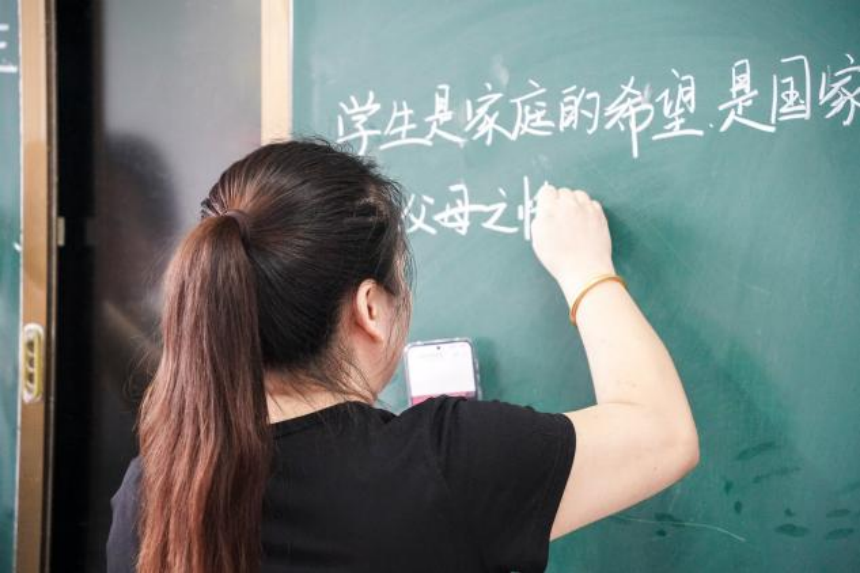 学生是家庭的希望.是国家
父母之